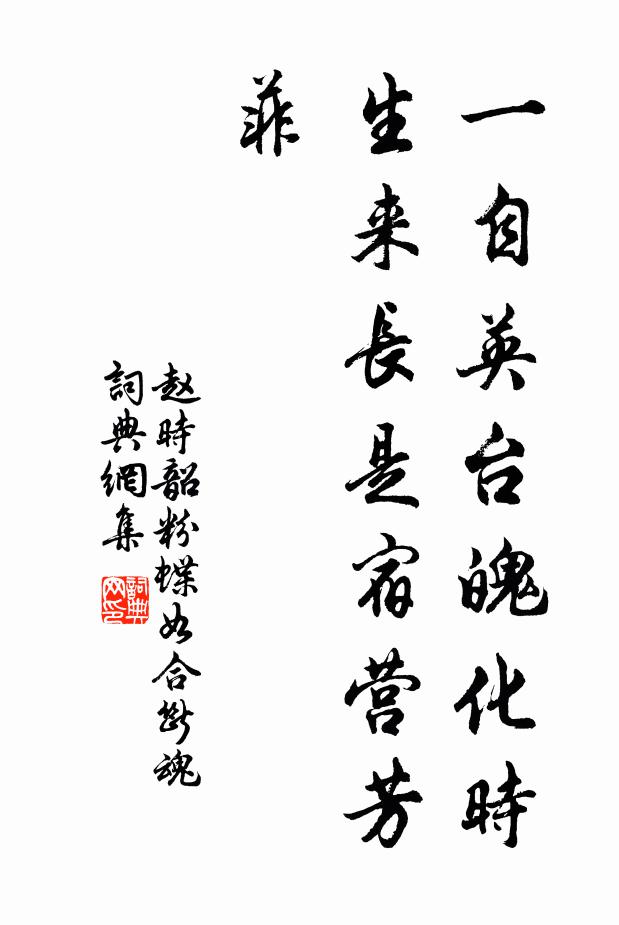 一自英台魄化時
生来長是宿营芳
菲
赵時韶粉蝶如合断魂
詞典網集
詞典
网印